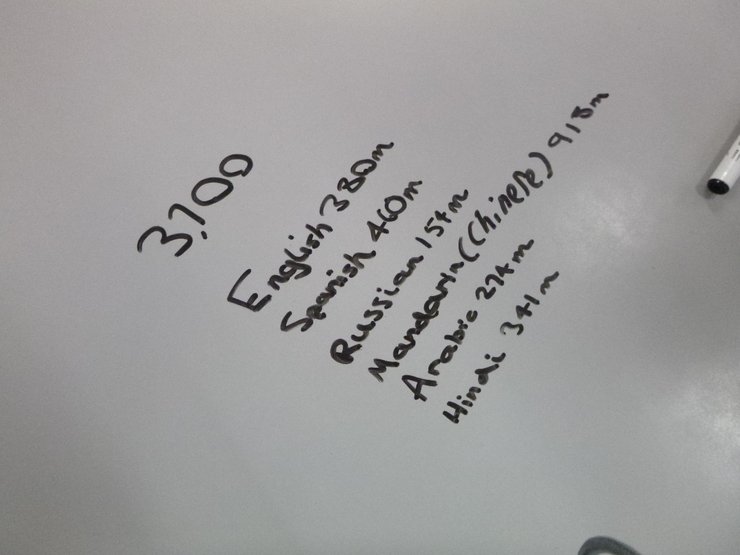 3,100
English 380m
Spanish 460m
Russian 154m
Mandarin (Chinese) 918m
Arabic 274m
Hindi 341m